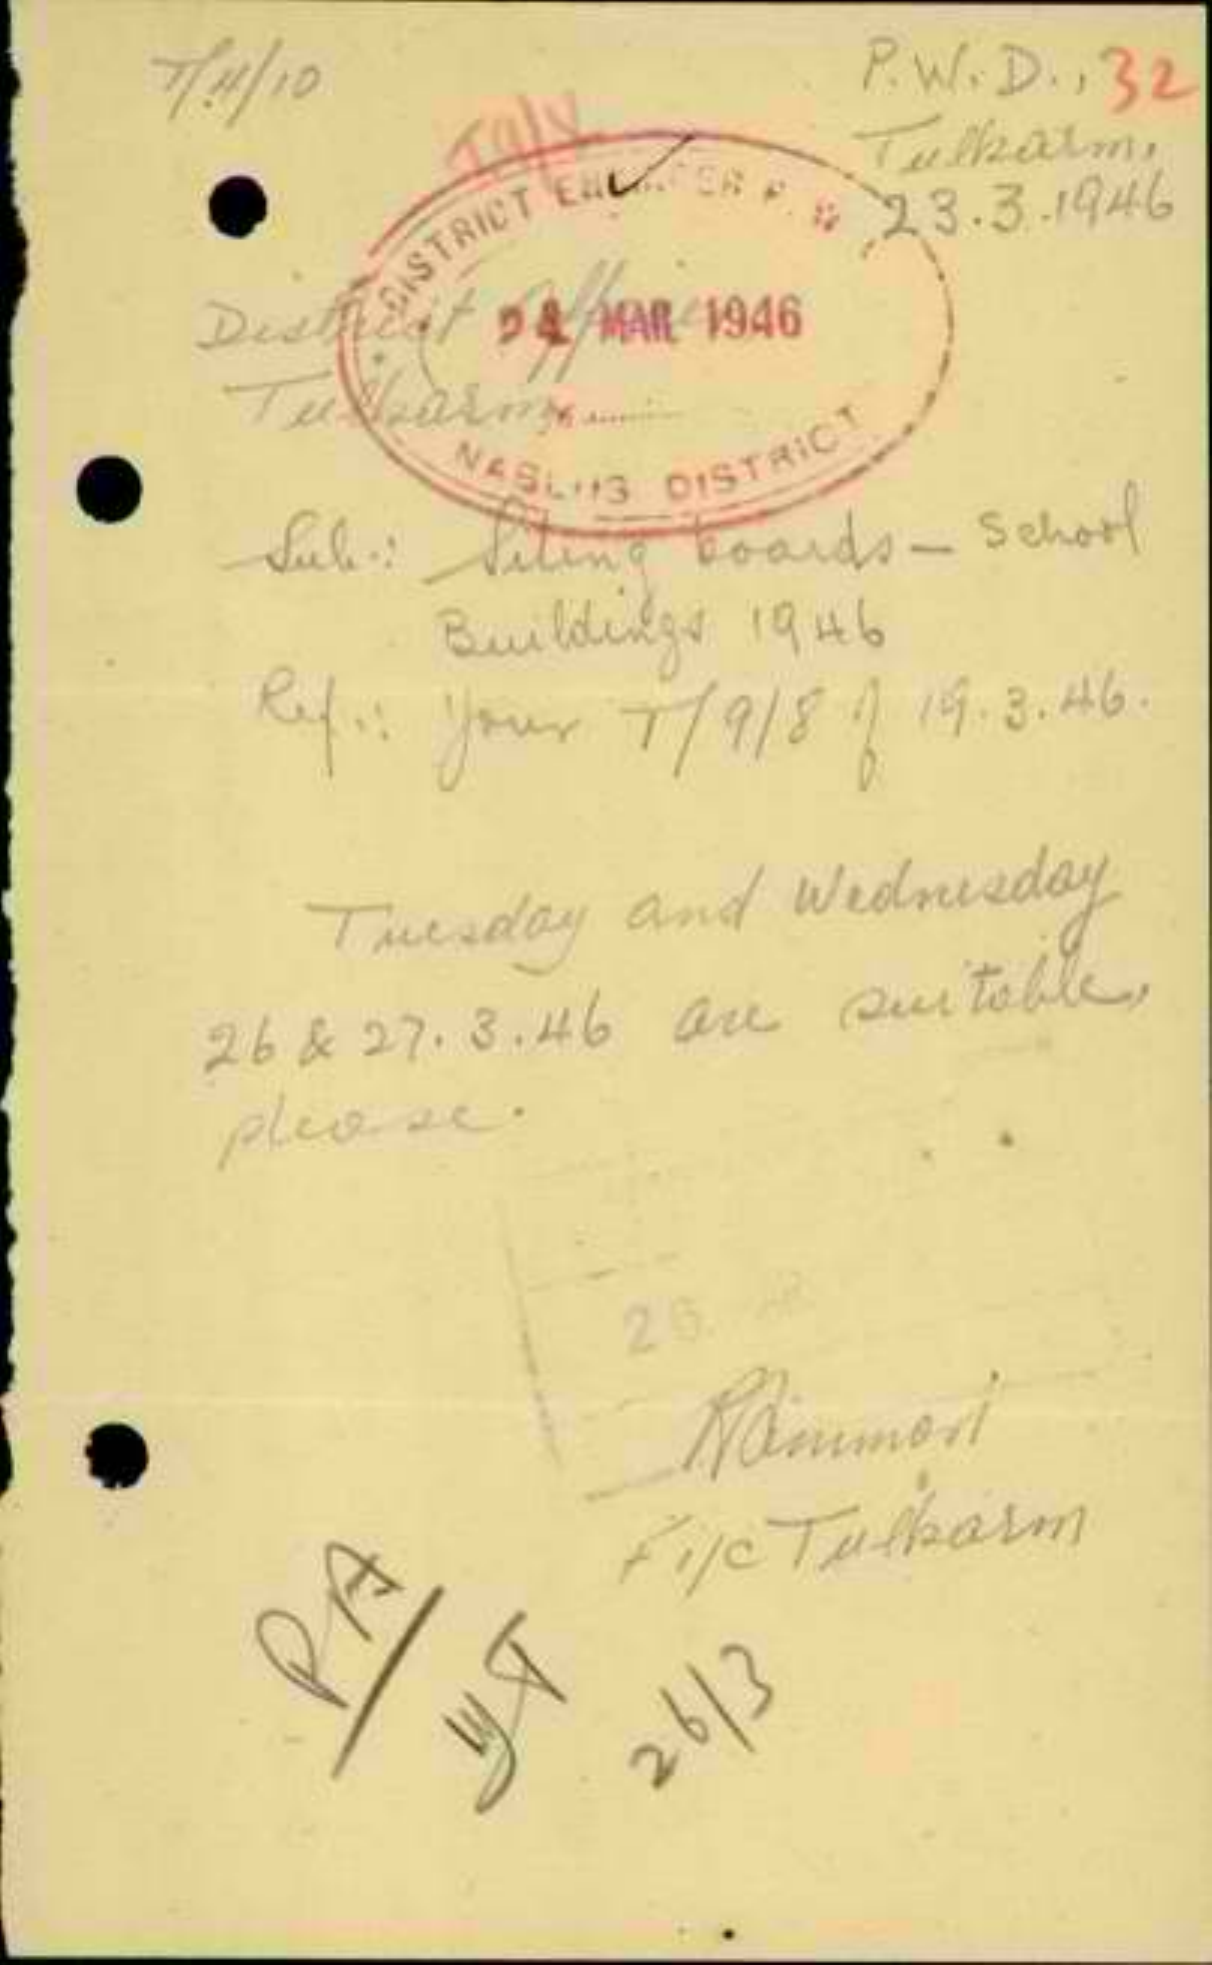 T/4/10
P.W.D., 32
Tulkarm,
23.3.1946
DISTRICT ENGINEER P. W.
24 MAR 1946
NABLUS DISTRICT
District Officer
Tulkarm
Sub.: Siting boards — School
Buildings 1946
Ref.: Your T/9/8 of 19.3.46.
Tuesday and Wednesday
26 & 27.3.46 are suitable,
please.
26
F i/c Tulkarm
PA
26/3